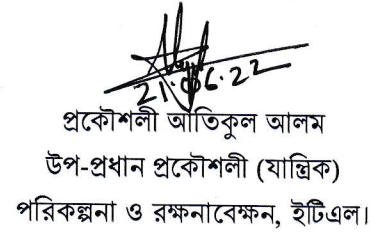 21.06.22
প্রকৌশলী আতিকুল আলম
উপ-প্রধান প্রকৌশলী (যান্ত্রিক)
পরিকল্পনা ও রক্ষনাবেক্ষন, ইটিএল।